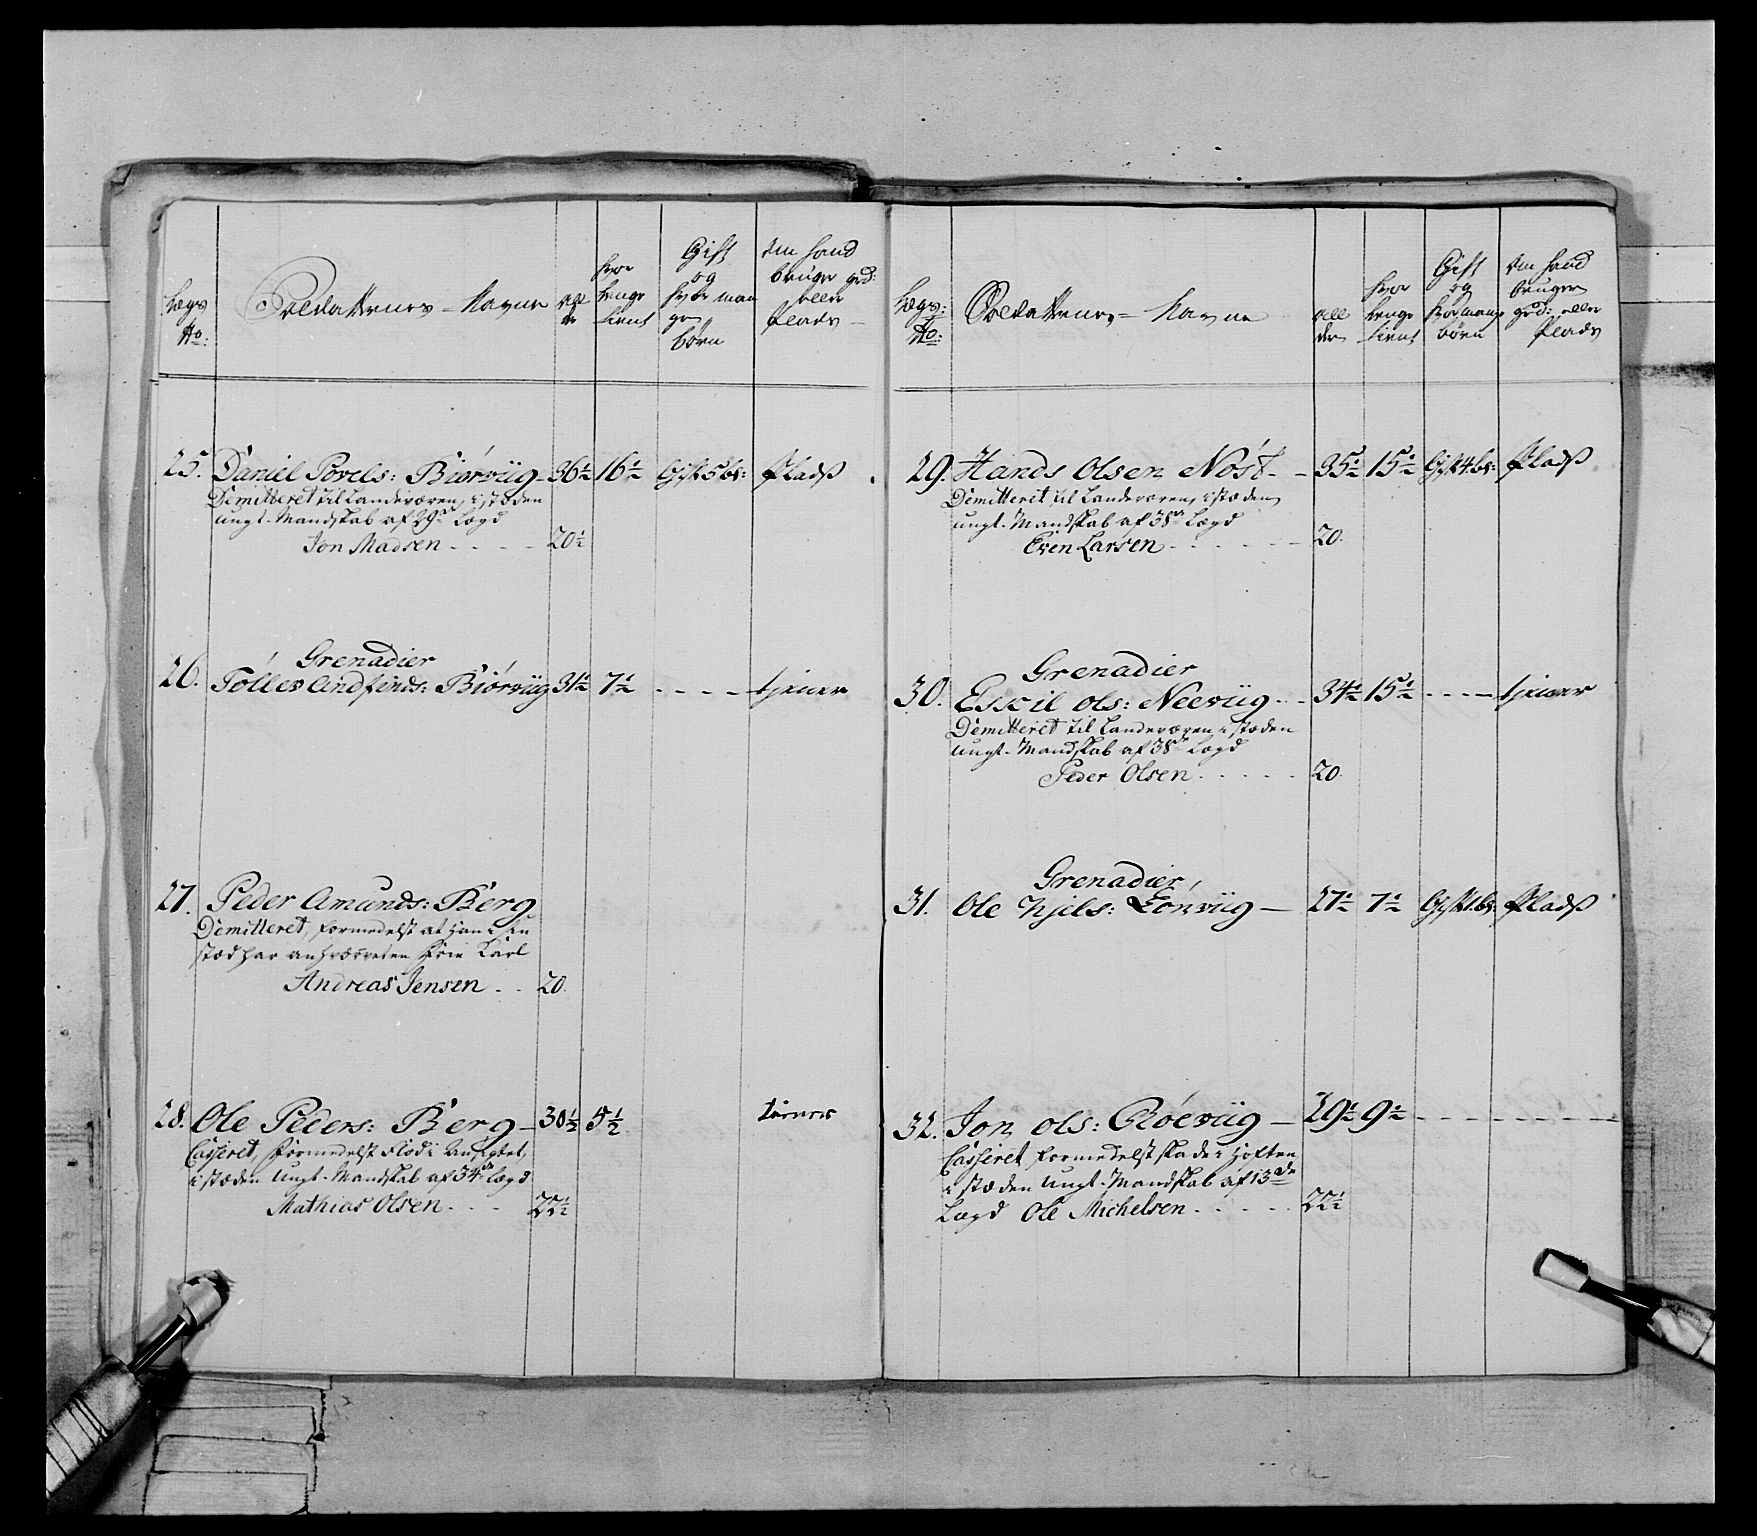 Lægs No:
Soldatternes = Navne
all der
hvor lenge tient
Gift og hvor mange børn
om hand bruger grd: eller Plads
25. Daniel Povels: Biørviig – 36½ 16½ Gift 5 br: Pladß
Demitteret til Landeværen, i stæden
ungt Mandskab af 29de Lægd
Jon Madsen - - - - 20½
Grenadier
26. Tølles Andfinds: Biørviig 31½ 7½ - - - - tjener
27. Peder Amunds: Berg
Demitteret, formedelst at han i sin
stæd har anhværvet en frie Karl
Andreas Jensen - - 20.
28. Ole Peders: Berg – 30½ 5½ tiener
Casseret, formedelst Flod i Ansigtet,
i stæden ungt Mandskab af 34de Lægd
Mathias Olsen - - - 22½
Lægs: No:
Soldatternes = Navne
all der
hvor lenge tient
Gift og hvor mange børn
om hand bruger grd: eller Plads
29. Hands Olsen Nøst - – 35½ 15½ Gift 4 br: Pladß
Demitteret til Landeværen, i stæden
ungt Mandskab af 38de Lægd
Even Larsen - - - - - 20.
Grenadier
30. Eskil Ols: Neeviig - - 34½ 15½ - - - - tjener
Demitteret til Landeværen i stæden
ungt Mandskab af 38de Lægd
Peder Olsen - - - - - 20.
Grenadier
31. Ole Njels: Lonviig — 27½ 7½ Gift 1 br: Pladß
32. Jon Ols: Røeviig — 29½ 9½ - - - - - -
Casseret formedelst skade i Høften
i stæden ungt Mandskab af 13de
Lægd Ole Michelsen - - - - - 22½